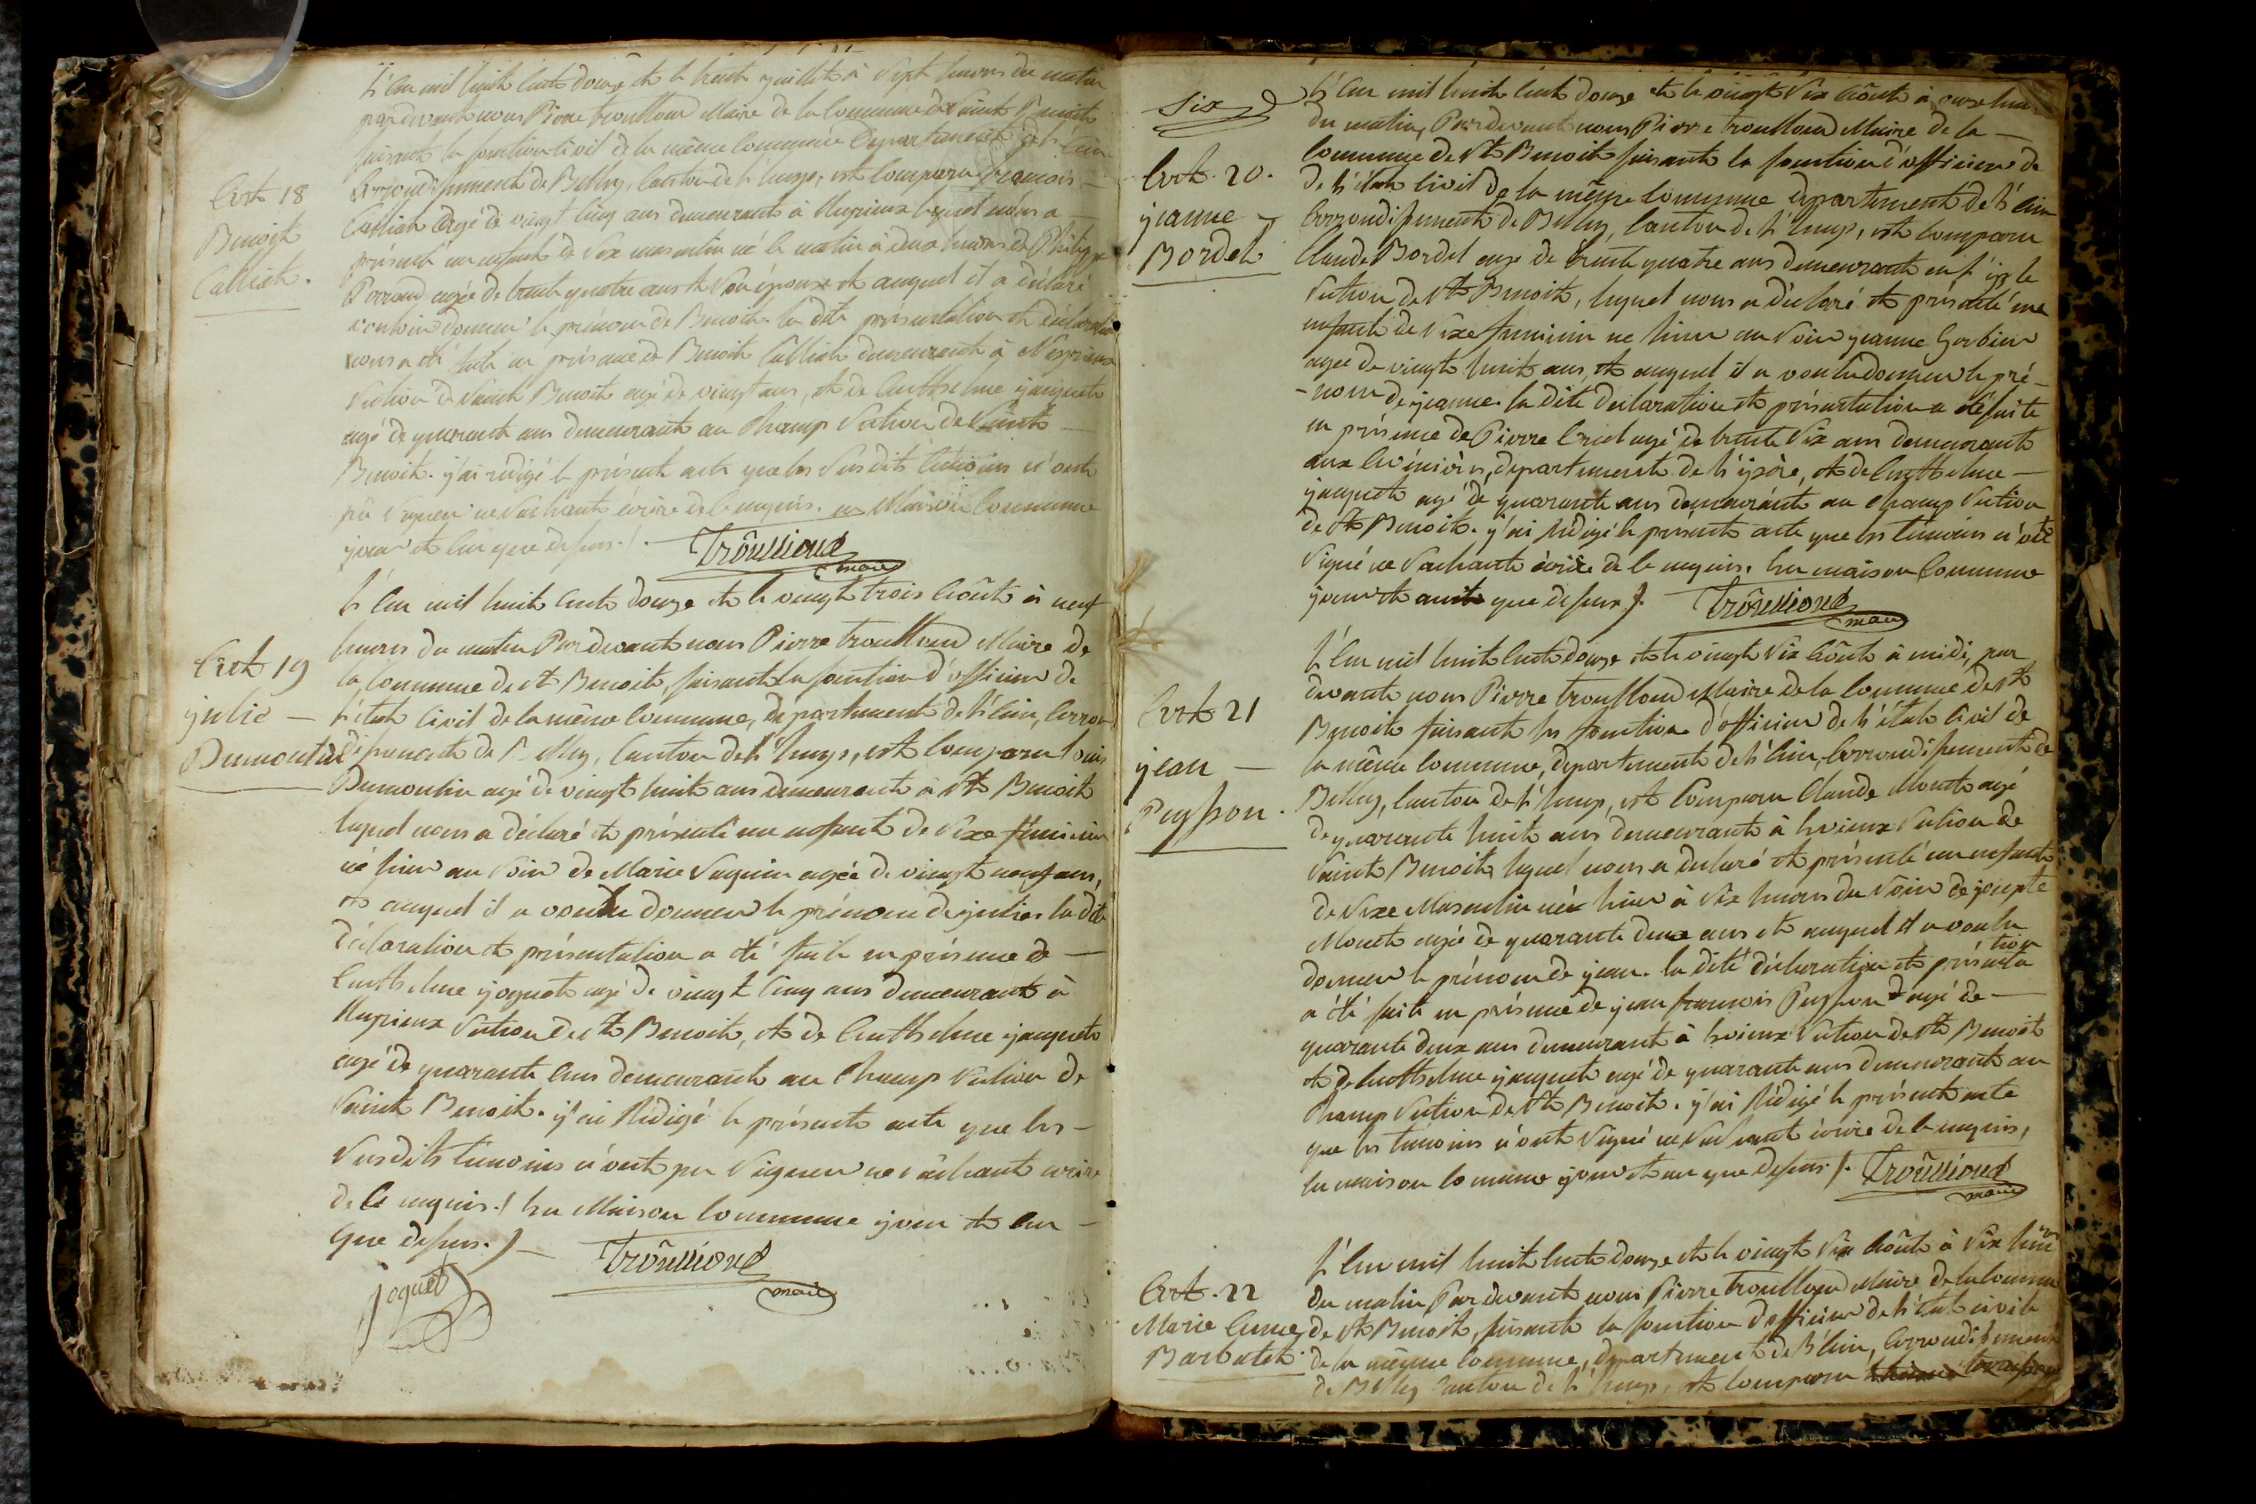 L'an mil huit cent douze et le trente juillet à sept heures du matin
par devant nous Pierre troullioud Maire de la Commune de Saint Benoit
faisant la fonction civil de la même Commune Departement de l'ain
Art 18
Benoit
Calliat.
arrondissement de Belley, Canton de l'huys, est Comparu françois
Calliat agé de vingt cinq ans demeurant à lequel nous a
présenté un enfant de sexe masculin né le matin à deux heures de
Perraud agée de trente quatre ans Son épouse et auquel il a déclaré
vouloir donner le prénom de Benoit la dite presentation et déclaration
nous a été faite en présence de Benoit Calliat demeurant à
Section de Saint Benoit agé de vingt ans, et de Anthelme jaquet
agé de quarante ans demeurant au Champ Section de Saint
Benoit. j'ai redigé le présent acte que les Susdits témoins n'ont
pû Signer ne Sachant écrire de ce requis. en Maison Commune
jour et an que dessus./.
Troullioud
maire
L'an mil huit cent douze et le vingt trois Août à neuf
Art 19
julie
Dumoulin
heures du matin Par devant nous Pierre troullioud Maire de
la Commune de St Benoit, faisant la fonction d'officier de
l'état Civil de la même Commune, département de l'ain, arron
dissement de Belley, Canton de l'huys, est Comparu Louis
Dumoulin agé de vingt huit ans demeurant à St Benoit
lequel nous a déclaré et présenté un enfant de Sexe féminin
né hier au Soir de Marie agée de vingt neuf ans,
et auquel il a voulu donner le prénom de julie. la dite
déclaration et présentation a été faite en présence de
Anthelme joquet agé de vingt cinq ans demeurant à
Section de St Benoit, et de Anthelme jaquet
agé de quarante ans demeurant au Champ Section de
Saint Benoit. j'ai Rédigé le présent acte que les
Susdits témoins n'ont pu Signer ne sachant écrire
de Ce requis./ En Maison Commune jour et an
que dessus./
Troullioud
maire
joquet
Six
L'an mil huit cent douze et le vingt Six Août à onze heures
du matin, Par devant nous Pierre troullioud Maire de la
Art. 20.
jeanne
Bordel
Commune de St Benoit faisant la fonction d'officier de
de l'état Civil de la même Commune département de l'ain
arrondissement de Belley, Canton de l'huys, est Comparu
Claude Bordel agé de trente quatre ans demeurant
Section de St Benoit, lequel nous a déclaré et présenté une
enfant de Sexe feminin né hier au Soir jeanne
agée de vingt huit ans, et auquel il a voulu donner le pré-
-nom de jeanne. la dite declaration et présentation a été faite
en présence de Pierre agé de trente Six ans demeurant
aux Avenières, departement de l'isère, et de Anthelme
jaquet agé de quarante ans demeurant au champ Section
de St Benoit. j'ai Rédigé le présent acte que les témoins n'ont
Signé ne Sachant écrire de ce requis. En maison Commune
jour et an que dessus./.
Troullioud
maire
L'an mil huit cent douze et le vingt Six Août à midi, par
Art 21
jean
Peysson.
devant nous Pierre troullioud Maire de la Commune de St
Benoit faisant les fonction d'officier de l'état Civil de
la même Commune, departement de l'ain, arrondissement de
Belley, Canton de l'huys, est Comparu Claude agé
de quarante huit ans demeurant à Section de
Saint Benoit lequel nous a declaré et présenté un enfant
de Sexe Masculin né hier à Six heures du Soir de
agée de quarante deux ans et auquel il a voulu
donner le prénom de jean. la dité déclaration et présenta
tion
a été faite en présence de jean françois Peysson agé de
quarante deux ans demeurant à Section de St Benoit
et de Anthelme jaquet agé de quarante ans demeurant au
Champ Section de St Benoit. j'ai Rédigé le présent acte
que les temoins n'ont Signé ne Sachant écrire de ce requis,
En maison Commune jour et an que dessus./.
Troullioud
maire
L'an mil huit cent douze et le vingt Six Août à Six heures
Art. 22
Marie Anne
Barbatet.
du matin Par devant nous Pierre troullioud Maire de la Commune
de St Benoit, faisant la fonction d'officier de l'état civil
de la même Commune, département de l'ain, arrondissement
de Belley Canton de l'huys, est Comparu